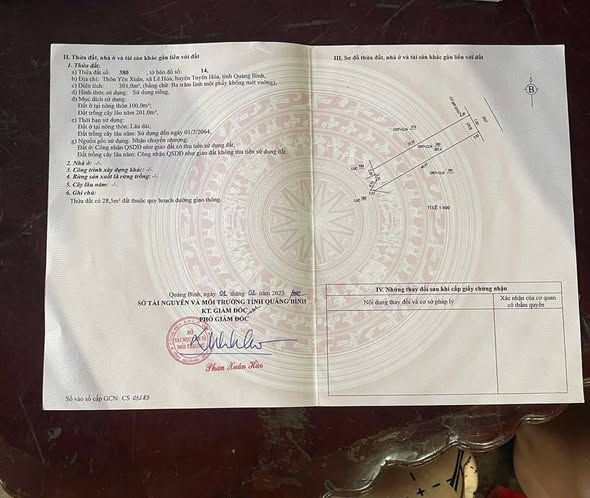 II. Thửa đất, nhà ở và tài sản khác gắn liền với đất
1. Thửa đất:
a) Thửa đất số: 380 , tờ bản đồ số: 14,
b) Địa chỉ: Thôn Yên Xuân, xã Lê Hóa, huyện Tuyên Hóa, tỉnh Quảng Bình,
c) Diện tích: 301,0m², (bằng chữ: Ba trăm linh một phẩy không mét vuông),
d) Hình thức sử dụng: Sử dụng riêng,
đ) Mục đích sử dụng:
Đất ở tại nông thôn 100,0m²;
Đất trồng cây lâu năm 201,0m².
e) Thời hạn sử dụng:
Đất ở tại nông thôn: Lâu dài;
Đất trồng cây lâu năm: Sử dụng đến ngày 01/7/2064,
g) Nguồn gốc sử dụng: Nhận chuyển nhượng:
Đất ở: Công nhận QSDĐ như giao đất có thu tiền sử dụng đất,
Đất trồng cây lâu năm: Công nhận QSDĐ như giao đất không thu tiền sử dụng đất.
2. Nhà ở: -/-.
3. Công trình xây dựng khác: -/-.
4. Rừng sản xuất là rừng trồng: -/-.
5. Cây lâu năm: -/-.
6. Ghi chú:
Thửa đất có 28,5m² đất thuộc quy hoạch đường giao thông.
Quảng Bình, ngày 01 tháng 02 năm 2023
SỞ TÀI NGUYÊN VÀ MÔI TRƯỜNG TỈNH QUẢNG BÌNH
KT. GIÁM ĐỐC
PHÓ GIÁM ĐỐC
SỞ
TÀI NGUYÊN VÀ
MÔI TRƯỜNG
Phan Xuân Hào
Số vào sổ cấp GCN: CS
III. Sơ đồ thửa đất, nhà ở và tài sản khác gắn liền với đất
B
TỈ LỆ 1:500
IV. Những thay đổi sau khi cấp giấy chứng nhận
Nội dung thay đổi và cơ sở pháp lý
Xác nhận của cơ quan
có thẩm quyền